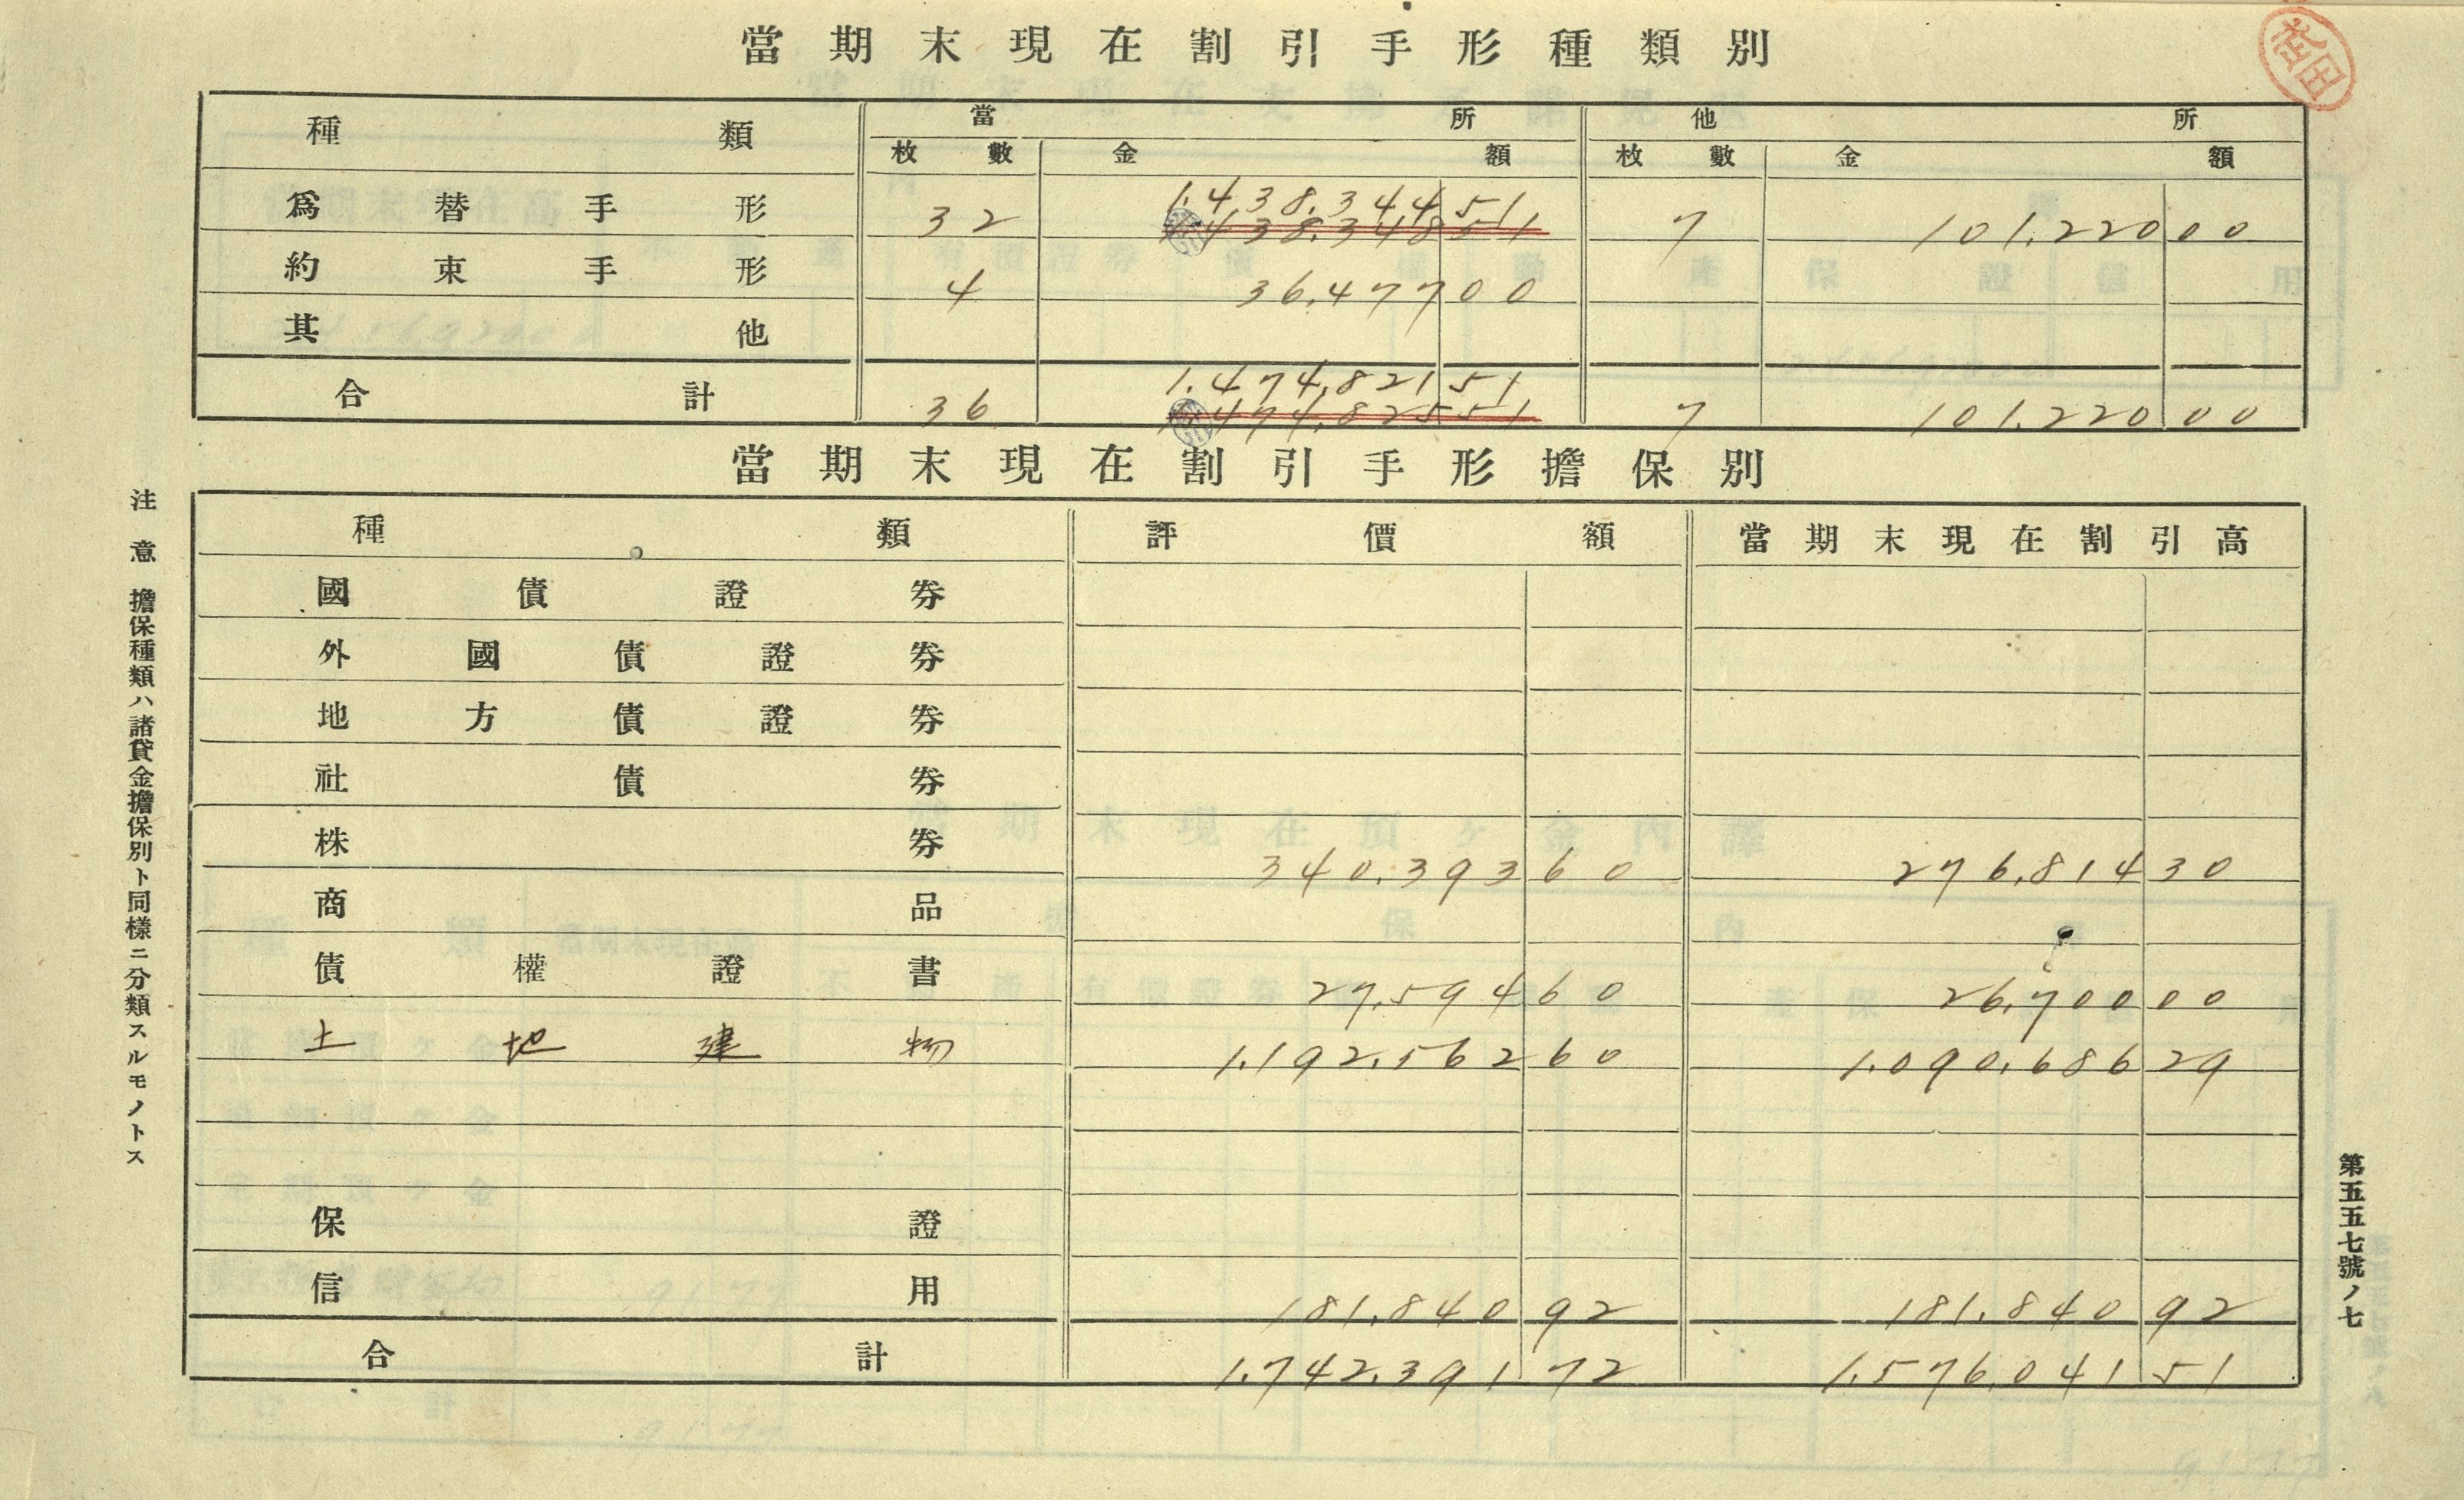 當期末現在割引手形種類別
武田
種類 當所 他所
枚數 金額 枚數 金額
爲替手形 32 1.438.344 51 7 101.220 00
1.438.348 51
約束手形 4 36.477 00
其他
合計 36 1.474.821 51 7 101.220 00
1.474.825 51
當期末現在割引手形擔保別
種類 評價額 當期末現在割引高
國債證券
外國債證券
地方債證券
社債券
株券 340.393 60 276.814 30
商品
債權證書 27.594 60 26.700 00
土地建物 1.192.562 60 1.090.686 29
保證
信用 181.840 92 181.840 92
合計 1.742.391 72 1.576.041 51
注意 擔保種類ハ諸貸金擔保別ト同樣ニ分類スルモノトス
第五五七號ノ七